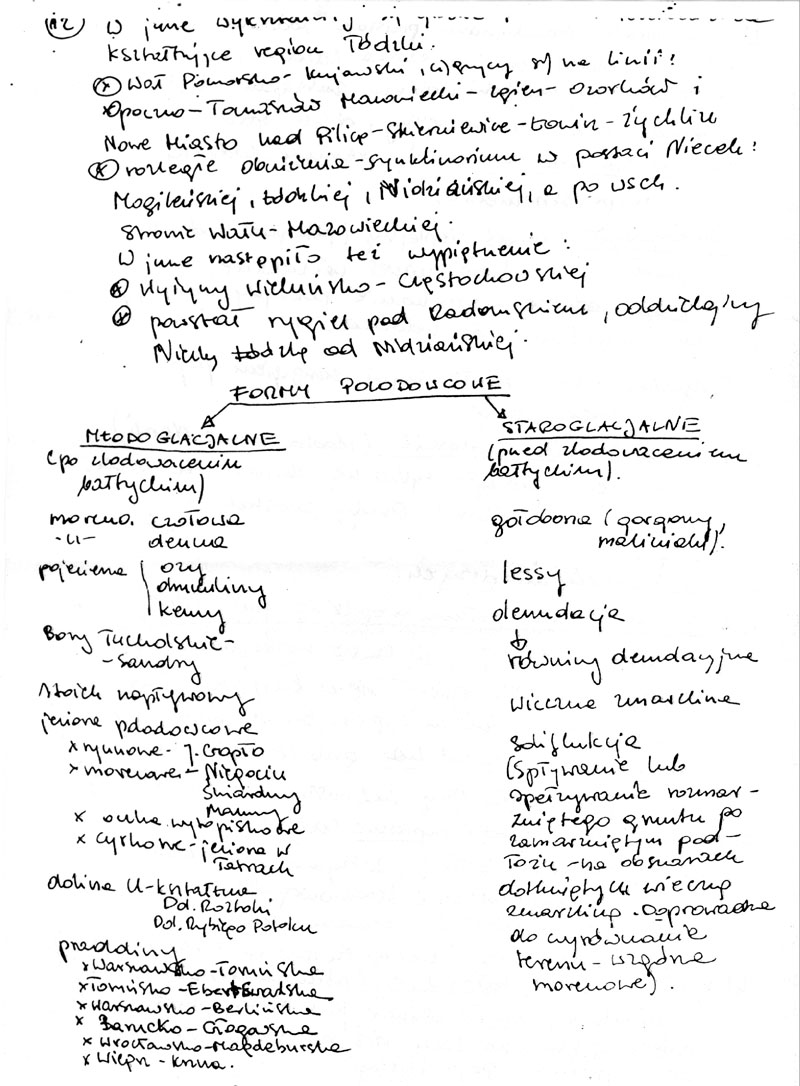 (12) W jurze wykształciły się
kształtujące region Łódzki.
⊗ Wał Pomorsko-Kujawski, ciągnący się na linii:
Opoczno-Tomaszów Mazowiecki-Zgierz-Ozorków i
Nowe Miasto nad Pilicą-Skierniewice-Łowicz-Żychlin
⊗ rozległe obniżenia-synklinorium w postaci Niecek:
Mogileńskiej, Łódzkiej, Nidziańskiej, a po wsch.
stronie Wału-Mazowieckiej.
W jurze nastąpiło też wypiętrzenie:
⊗ Wyżyny Wieluńsko-Częstochowskiej
⊗ powstał rygiel pod Radomskiem, oddzielający
Nieckę Łódzką od Nidziańskiej.
FORMY POLODOWCOWE
MŁODOGLACJALNE
(po zlodowaceniu
bałtyckim)
morena czołowa
-"- denna
pojezierna ozy
drumliny
kemy
Bory Tucholskie-
-sandry
stożek napływowy
jeziora polodowcowe
x rynnowe - j. Gopło
x morenowe - Niegocin
Śniardwy
Mamry
x oczka wytopiskowe
x cyrkowe - jeziora w
Tatrach
dolina U-kształtna
Dol. Roztoki
Dol. Rybiego Potoku
pradoliny
x Warszawsko-Toruńska
x Toruńsko-Eberswaldska
x Warszawsko-Berlińska
x Barucko-Głogowska
x Wrocławsko-Magdeburska
x Wieprz-Krzna.
STAROGLACJALNE
(przed zlodowaceniem
bałtyckim).
gołoborza (gorgany,
maliniaki).
lessy
denudacja
↓
równiny denudacyjne
wieczna zmarzlina
soliflukcja
(spływanie lub
spełzywanie rozmar-
zniętego gruntu po
zamarzniętym pod-
łożu - na obszarach
dotkniętych wieczną
zmarzliną. Doprowadza
do wyrównania
terenu - wzgórza
morenowe).